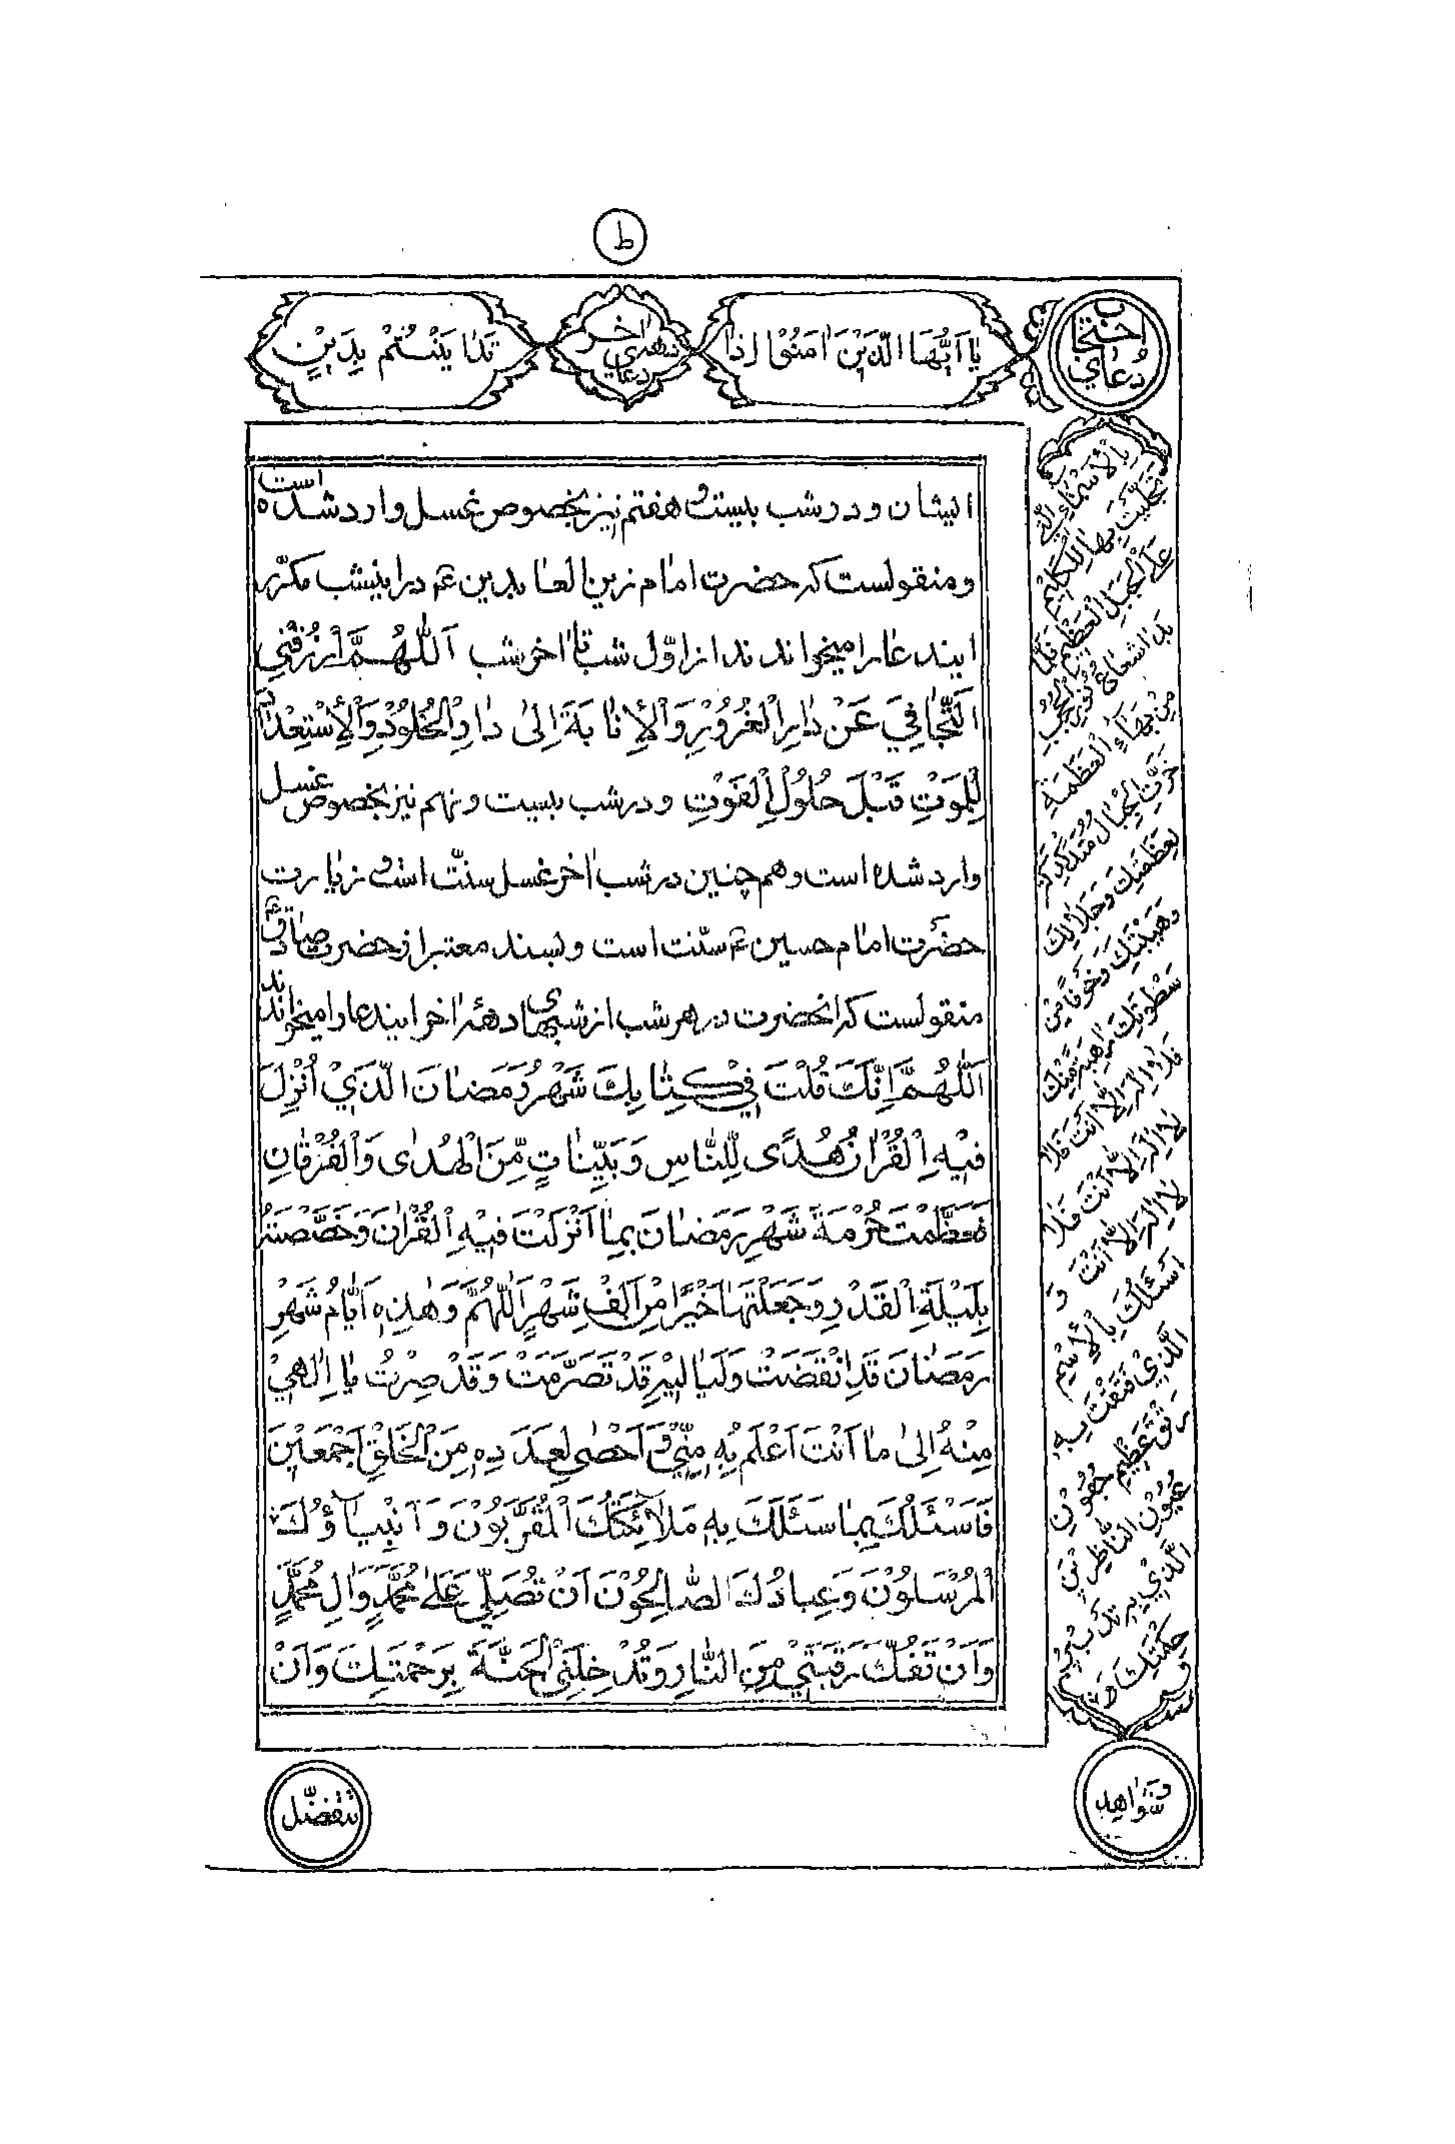 ط
يٰا اَيُّهَا الَّذَيْنَ اٰمَنُوْا اِذٰا
دعاى دههٔ اٰخر
تَدٰايَنْتُمْ بِدَيْنٍ
دُعاي احتجاب
ايشان و در شب بيست و هفتم نيز بخصوص غسل وارد شده است
و منقولست كه حضرت امام زين العابدين ع در اينشب مكرّر
ايندعا را ميخواندند از اوّل شب تا اٰخر شب اَللّٰهُمَّ ارْزُقْنِي
اَلتَّجٰافِيَ عَنْ دٰارِ الْغُرُوْرِ وَالْاِنٰابَةَ اِلىٰ دٰارِ الْخُلُوْدِ وَالْاِسْتِعْدٰادَ
لِلْمَوْتِ قَبْلَ حُلُوْلِ الْفَوْتِ و در شب بيست و نهم نيز بخصوص غسل
وارد شده است و هم چنين در شب اٰخر غسل سنّت است و زيارت
حضرت امام حسين ع سنّت است و بسند معتبر از حضرت صادق ع
منقولست كه انحضرت در هر شب از شبهاى دههٔ اٰخر ايندعا را ميخواندند
اَللّٰهُمَّ اِنَّكَ قُلْتَ فِيْ كِتٰابِكَ شَهْرُ رَمَضٰانَ الَّذَيْ اُنْزِلَ
فِيْهِ الْقُرْاٰنُ هُدًى لِلنّٰاسِ وَبَيِّنٰاتٍ مِّنَ الْهُدٰى وَالْفُرْقٰانِ
فَعَظَّمْتَ حُرْمَةَ شَهْرِ رَمَضٰانَ بِمٰا اَنْزَلْتَ فِيْهِ الْقُرْاٰنَ وَخَصَّصْتَهُ
بِلَيْلَةِ الْقَدْرِ وَجَعَلْتَهٰا خَيْرًا مِنْ اَلْفِ شَهْرٍ اَللّٰهُمَّ وَهٰذِهِ اَيّٰامُ شَهْرِ
رَمَضٰانَ قَدِ انْقَضَتْ وَلَيٰالِيْهِ قَدْ تَصَرَّمَتْ وَقَدْ صِرْتُ يٰا اِلٰهِيْ
مِنْهُ اِلىٰ مٰا اَنْتَ اَعْلَمُ بِهِ مِنِّيْ وَ اَحْصٰى لِعَدَدِهِ مِنَ الْخَلْقِ اَجْمَعَيْنَ
فَاَسْئَلُكَ بِمٰا سَئَلَكَ بِهِ مَلٰائِكَتُكَ الْمُقَرَّبُوْنَ وَ اَنْبِيٰاؤُكَ
الْمُرْسَلُوْنَ وَعِبادُكَ الصّٰالِحُوْنَ اَنْ تُصَلِّيَ عَلىٰ مُحَمَّدٍ وَاٰلِ مُحَمَّدٍ
وَاَنْ تَفُكَّ رَقَبَتَيْ مِنَ النّٰارِ وَتُدْخِلَنِيْ الْجَنَّةَ بِرَحْمَتِكَ وَاَنْ
تَتَفَضَّل
بِالْاَسْمٰاءِ الَّتِي
تَجَلَّيْتَ بِهٰا لِلْكَلِيْمِ
عَلَى الْجَبَلِ الْعَظِيْمِ فَلَمّٰا
بَدٰا شُعٰاعُ نُوْرِ الْحُجُبِ
مِنْ بَهٰاءِ الْعَظَمَةِ
خَرَّتِ الْجِبٰالُ مُتَدَكْدِكَةً
لِعَظَمَتِكَ وَجَلٰالِكَ
وَهَيْبَتِكَ وَخَوْفًا مِنْ
سَطْوَتِكَ رٰاهِبَةً مِنْكَ
فَلٰا اِلٰهَ اِلّٰا اَنْتَ فَلٰا
لٰا اِلٰهَ اِلّٰا اَنْتَ فَلٰا
لٰا اِلٰهَ اِلّٰا اَنْتَ وَ
اَسْئَلُكَ بِالْاِسْمِ
الَّذِيْ فَتَقْتَ بِهِ
رَتْقَ عَظِيْمِ جُفُوْنِ
عُيُوْنِ النّٰاظِرِيْنَ
الَّذِيْ بِهِ تَدْبِيْرُ
حِكْمَتِكَ وَ
وَشَوٰاهِد